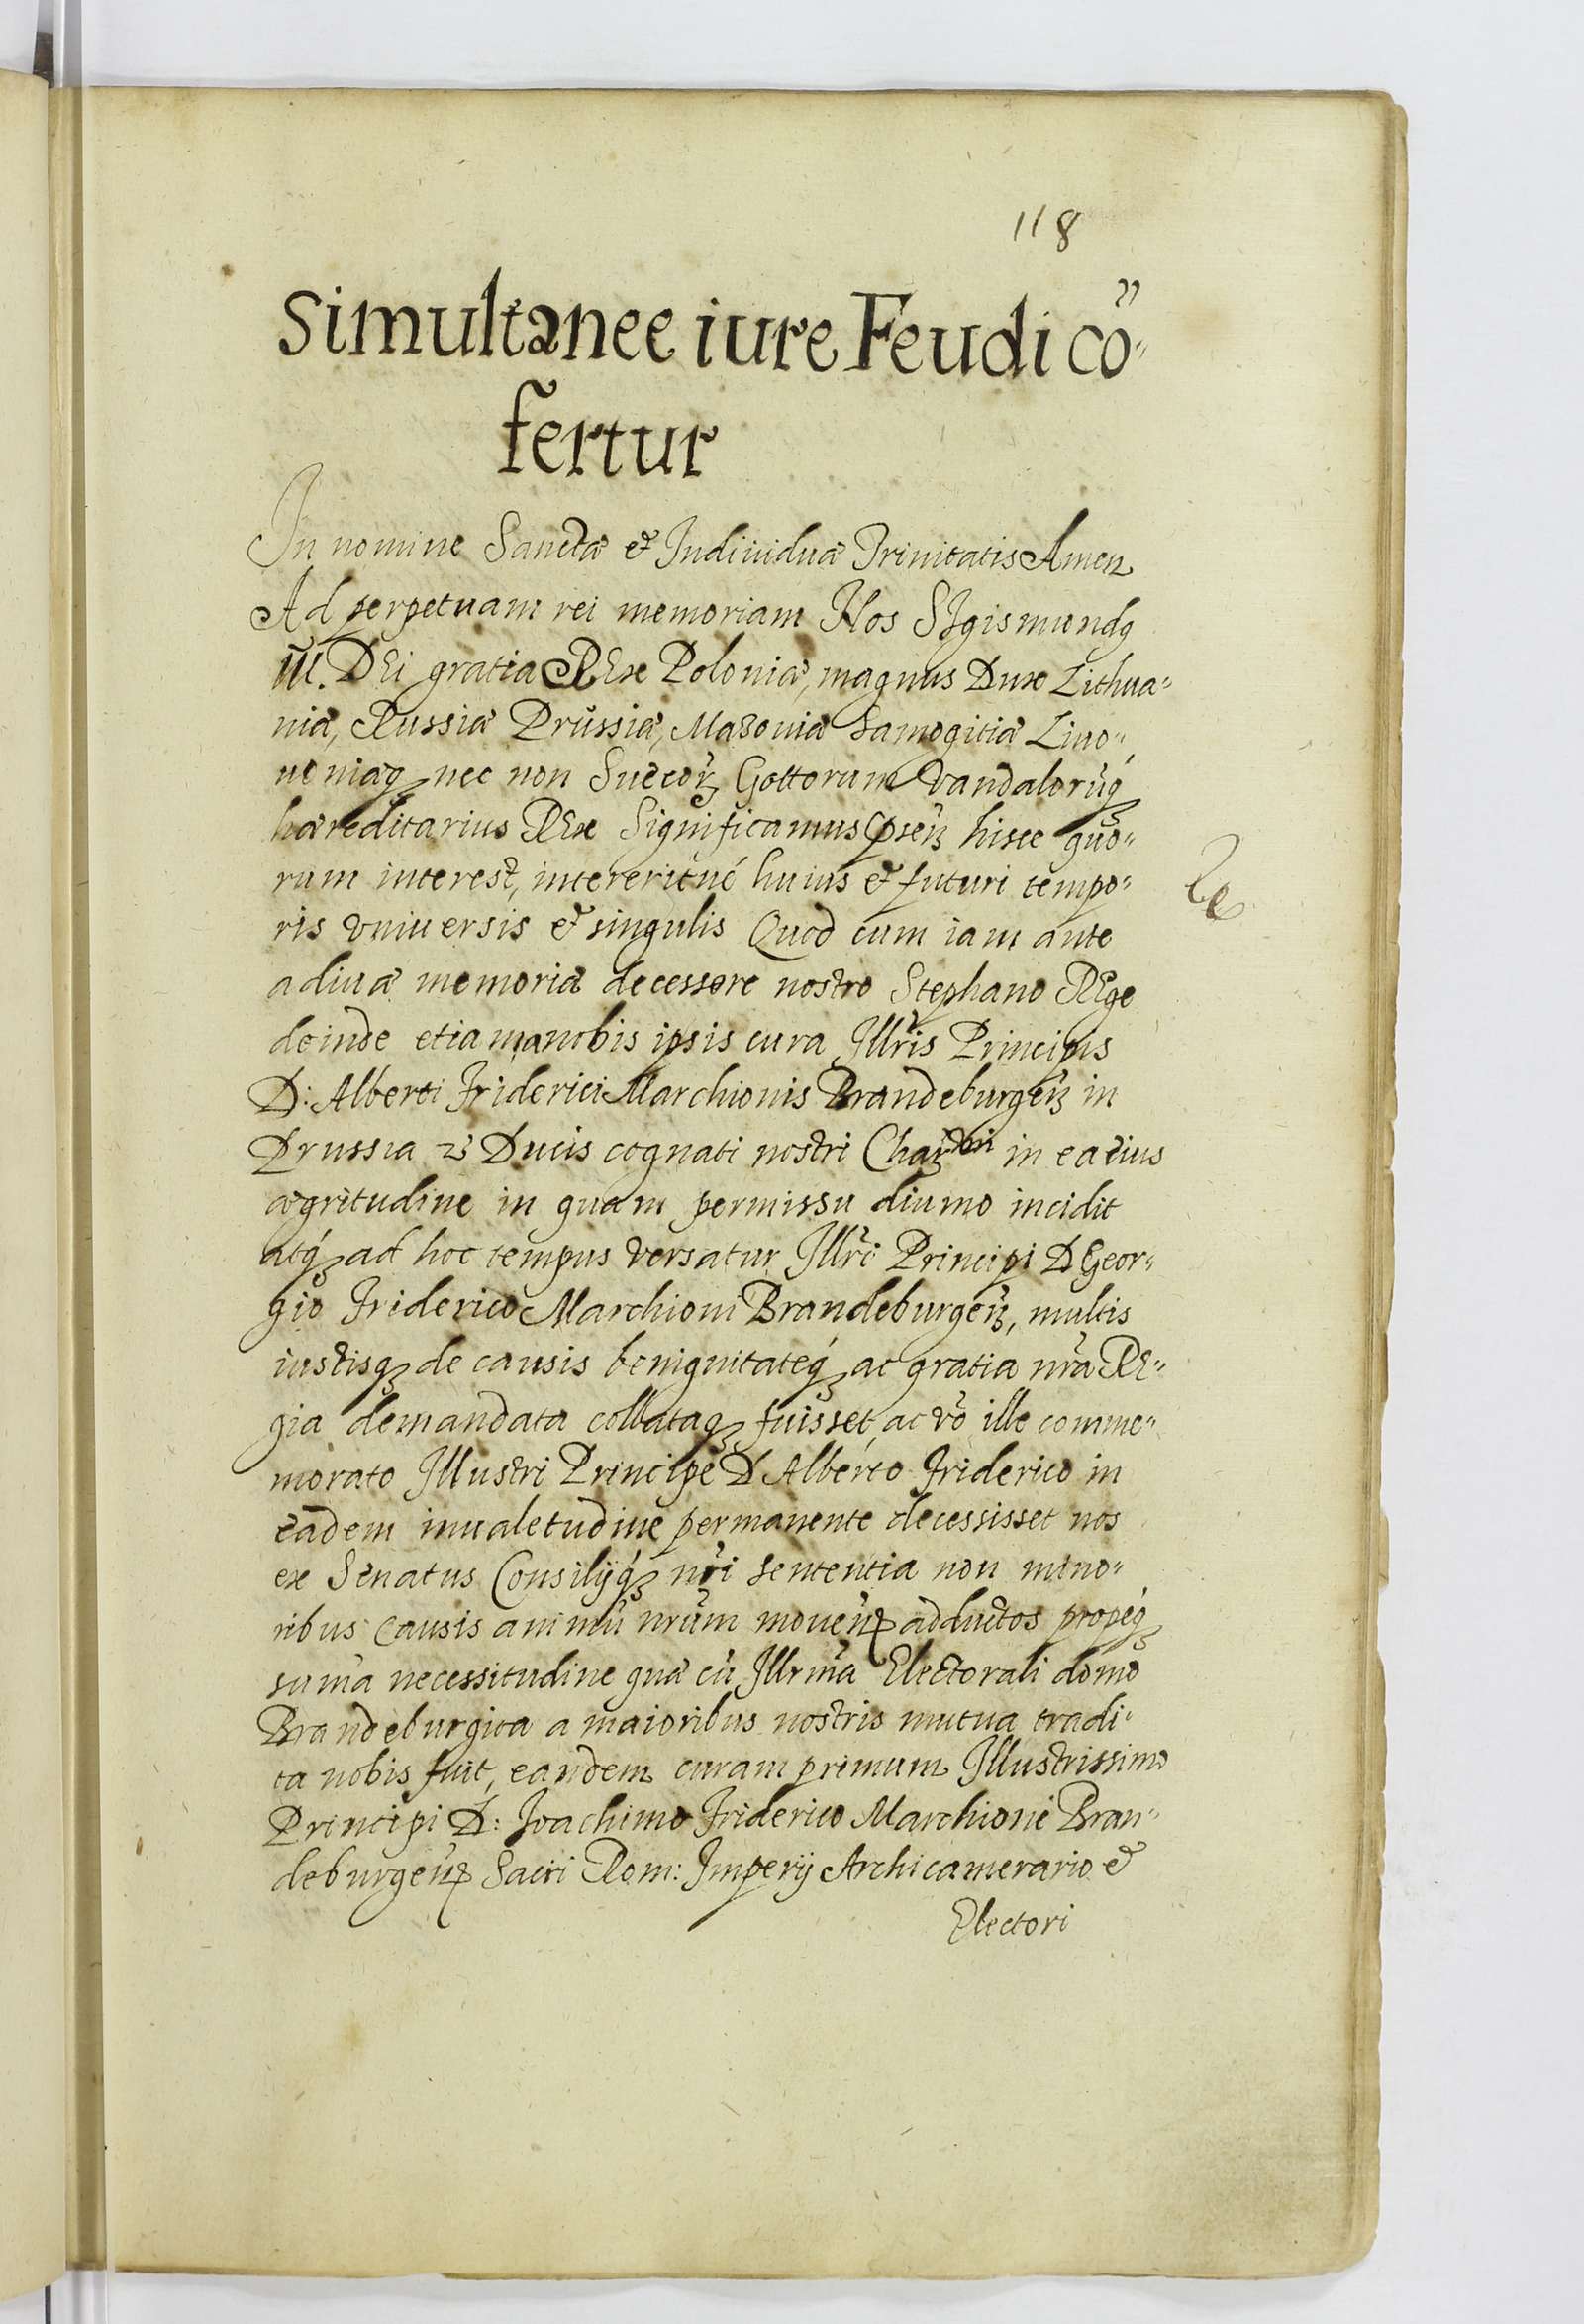 118
Simultanee iure Feudi cõ„
fertur
In nomine Sanctæ et Indiuiduæ Trinitatis Amen
Ad perpetuam rei memoriam Nos SIgismundꝯ
III. DEi gratia REx Poloniæ, magnus Dux Lithua„
niæ, Russiæ Prŭssiæ, Mazouiæ Samogitiæ Liuo„
uoniæqꝫ nec non Suecoꝝ Gottorum Vandalorũqꝫ
hæreditarius REx Significamus pñseñ hisce quo„
rum interest, intereritué huius et futuri tempo„
ris vniuersis et singulis Quod cum iam ante
a diuæ memoriæ decessore nostro Stephano REge
deinde etiam a nobis ipsis cura Illr̃is Principis
D: Alberti Friderici Marchionis Brandeburgeñ in
Prussia ꝛc Ducis cognati nostri Chaꝝmi in ea eius
ægritudine in quam permissu diuino incidit
atqꝫ ad hoc tempus versatur Illr̃i Principi D Geor„
gio Friderico Marchioni Brandeburgeñ, multis
iustisqꝫ de causis benignitateqꝫ ac gratia nr̃a RE„
gia demandata collataqꝫ fuisset, ac vr̃o ille comme„
morato Illustri Principe D Alberto Friderico in
eadem inualetudine permanente decessisset nos
ex Senatus Consilijqꝫ nr̃i sententia non mino„
ribus causis animũ nr̃um moueñ adductos propeqꝫ
suma necessitudine quæ cũ Illrma Electorali domo
Brandeburgica a maioribus nostris mutua tradi„
ta nobis fuit, eandem curam primum Illustrissimo
Principi D: Joachimo Friderico Marchioni Bran„
deburgeñ Sacri Rom: Imperij Archicamerario et
Electori